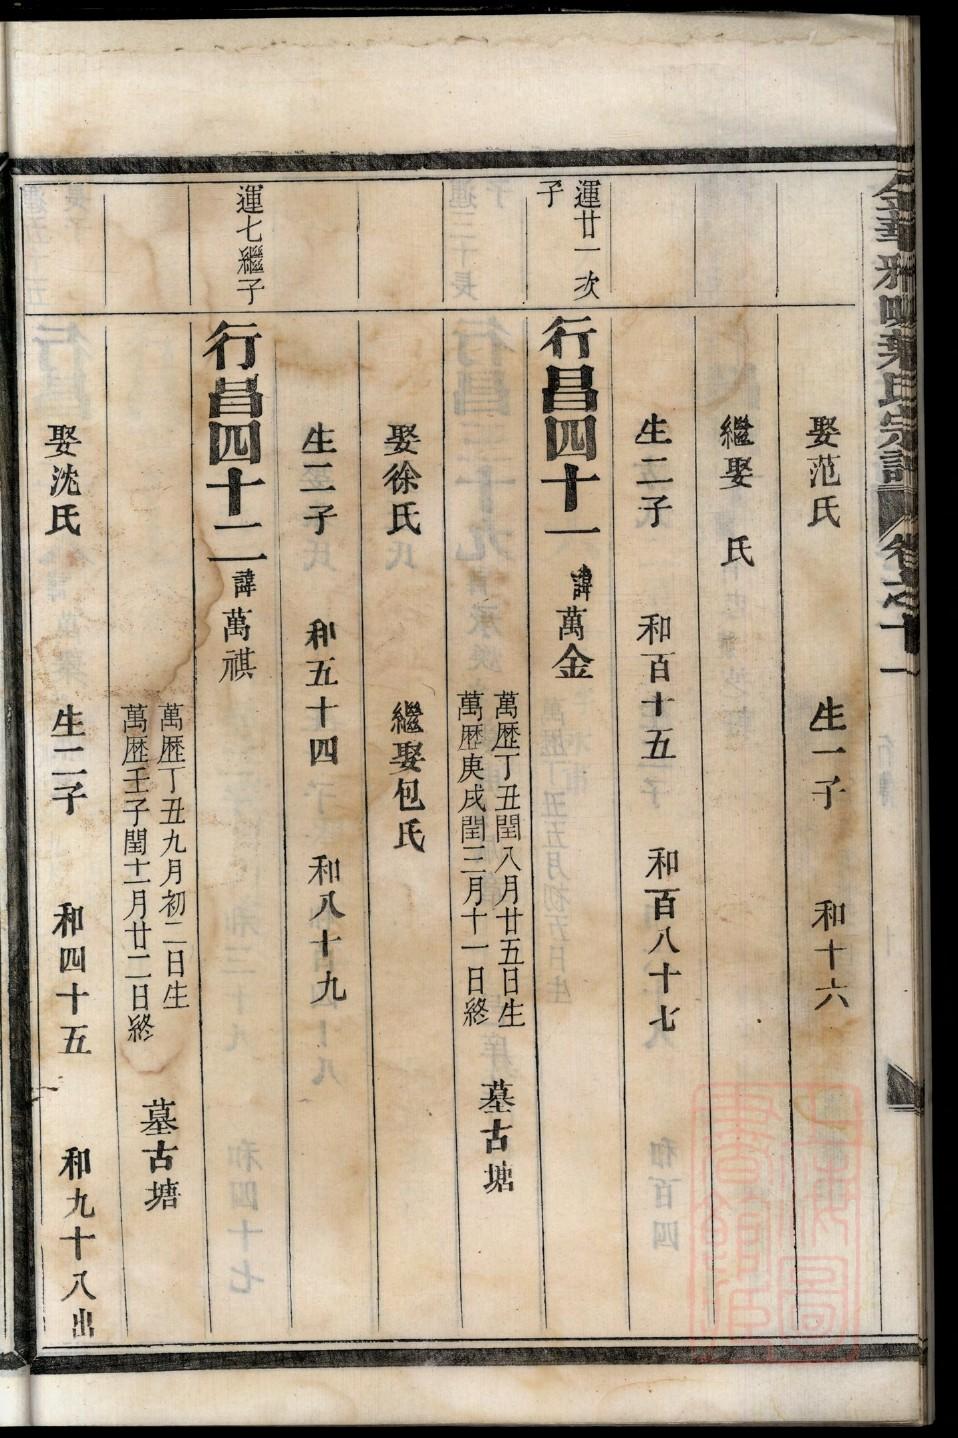 金華
葉氏宗譜
卷之十一
娶范氏 生一子 和十六
繼娶 氏
生二子 和百十五 和百八十七
運廿一次子
行昌四十一 諱萬金
萬歷丁丑閏八月廿五日生
萬歷庚戌閏三月十一日終
墓古塘
娶徐氏 繼娶包氏
生二子 和五十四 和八十九
運七繼子
行昌四十二 諱萬祺
萬歷丁丑九月初二日生
萬歷壬子閏十一月廿二日終
墓古塘
娶沈氏 生二子 和四十五 和九十八出